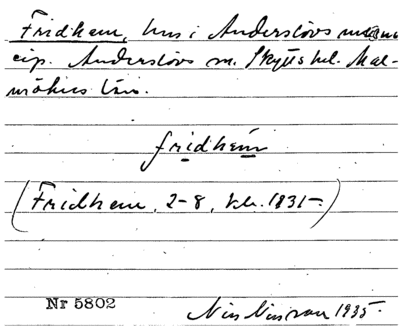 Fridhem, hus i Anderslövs municip.
cip. Anderslövs sn. Skytts hd. Mal-
möhus län.
fridhem
(Fridhem, 2-8, kb. 1831-)
Nr 5802
Nils Nilsson 1935.